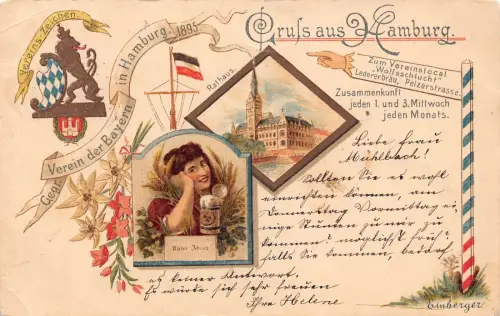 Vereins Zeichen.
Gegr. Verein der Bayern in Hamburg 1895
Gruss aus Hamburg.
Rathaus.
Zum Vereinslocal
"Wolfsschlucht"
Ledererbräu, Pelzerstrasse.
Zusammenkunft
jeden 1. und 3. Mittwoch
jeden Monats.
Liebe Frau
Mühlbach!
Sollten Sie es wohl
einrichten können, am
Donnerstag Vormittag ei-
nige Stunden zu mir zu
kommen? möglichst früh!
Falls Sie kommen, bedarf
es keiner Antwort.
Es würde sich sehr freuen
Ihre Helene
Einberger